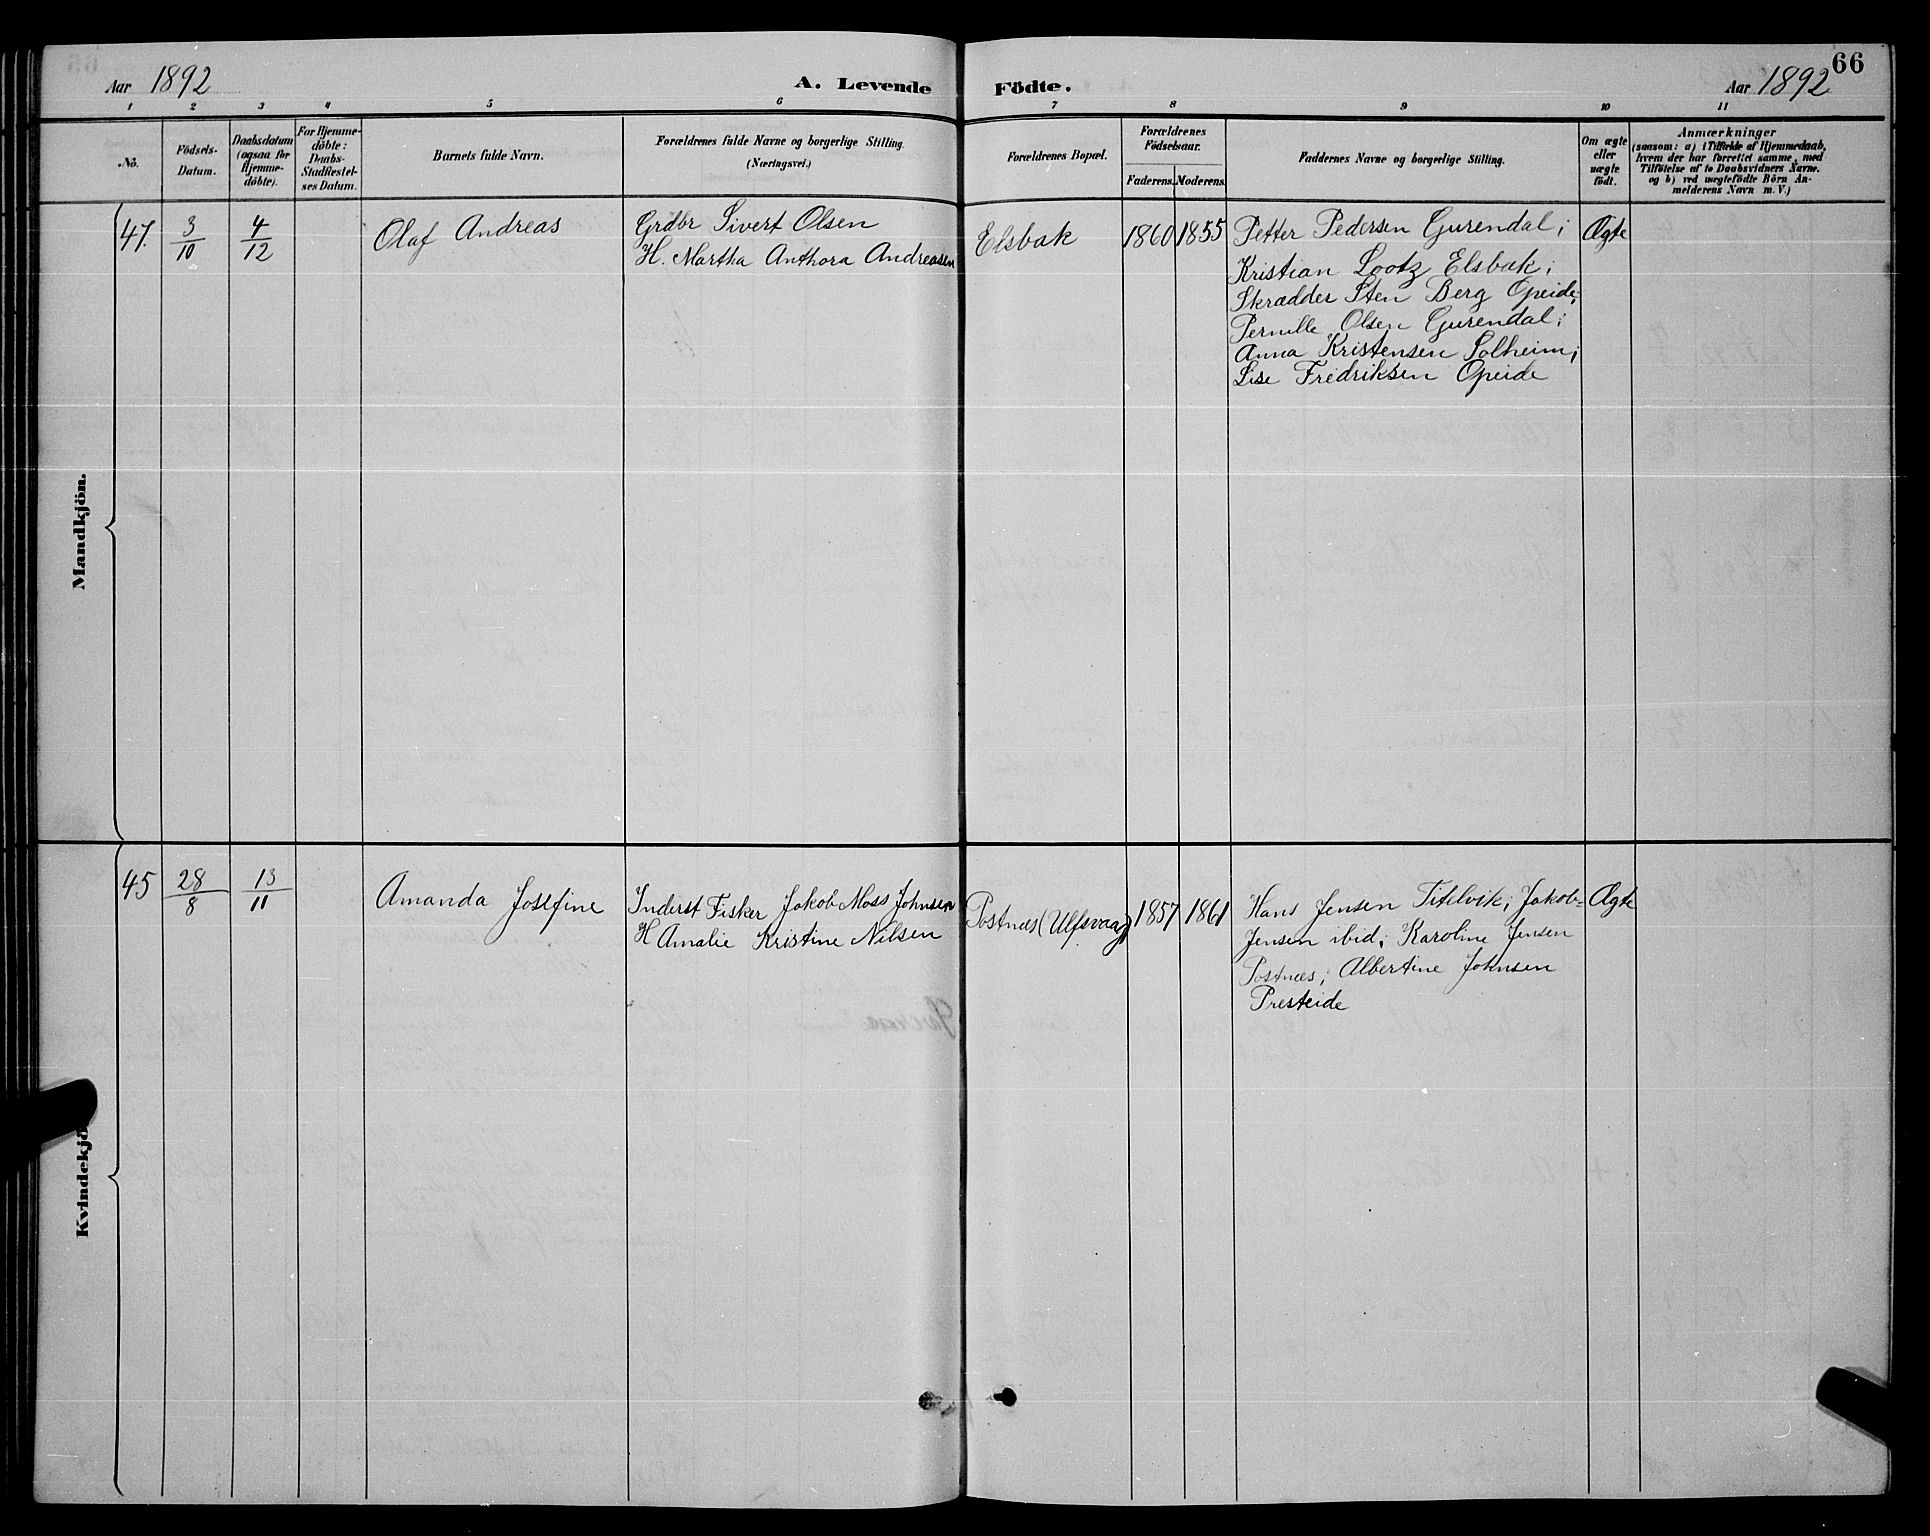 Aar 1892 A. Levende Födte. Aar 1892 66
1 2 3 4 5 6 7 8 9 10 11
No.
Födsels-
Datum.
Daabsdatum
(ogsaa for
Hjemme-
döbte).
For Hjemme-
döbte:
Daabs-
Stadfæstel-
ses Datum.
Barnets fulde Navn.
Forældrenes fulde Navne og borgerlige Stilling.
(Næringsvei.)
Forældrenes Bopæl.
Forældrenes
Födselsaar.
Faderens. Moderens.
Faddernes Navne og borgerlige Stilling.
Om ægte
eller
uægte
født.
Anmærkninger
(saasom: a) i Tilfælde af Hjemmedaab,
hvem der har forrettet samme, med
Tilföielse af to Daabsvidners Navne.
og b) ved uægtefödte Börn An-
melderens Navn m. V.)
Mandkjön.
47. 3/10 4/12 Olaf Andreas
Grdbr Sivert Olsen
H. Martha Anthora Andreasen
Elsbak 1860 1855
Petter Pedersen Gurendal;
Kristian Lootz Elsbak;
Skrædder Sten Berg Opeide;
Pernille Olsen Gurendal;
Anna Kristensen Solheim;
Lise Fredriksen Opeide
Ægte
Kvindekjö
45 28/8 13/11 Amanda Josefine
Inderst Fisker Jakob Moss Johnsen
H Amalie Kristine Nilsen
Postnæs (Ulfsvaag) 1857 1861
Hans Jensen Titelvik; Jakob
Jensen ibid; Karoline Jensen
Postnæs; Albertine Johnsen
Presteide
Ægte